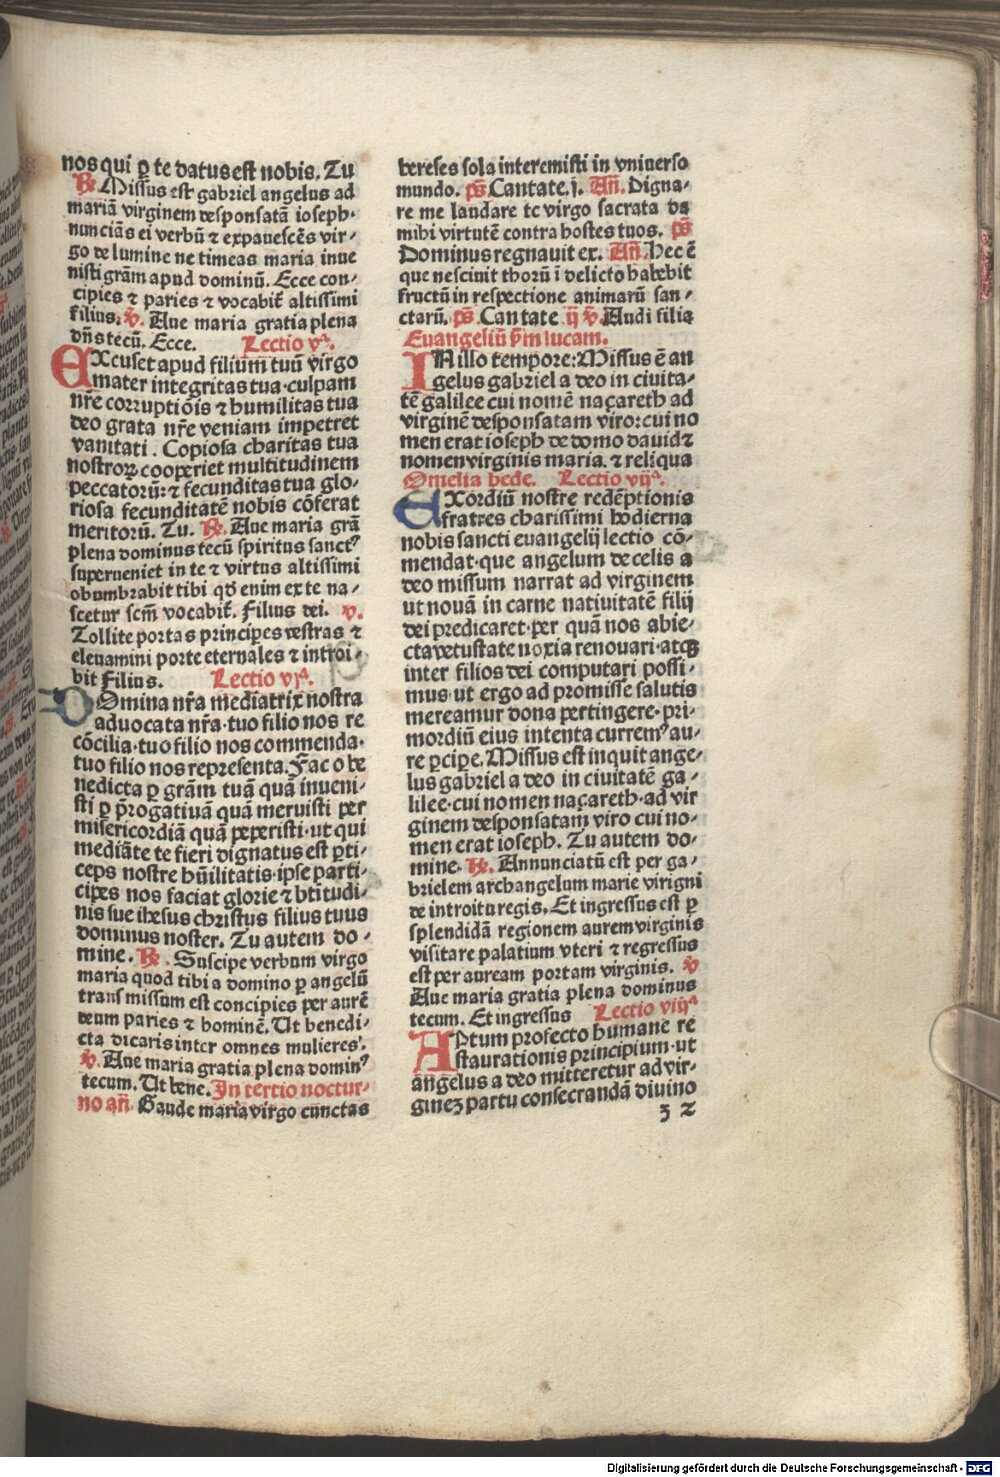 nos qui ꝑ te datus est nobis. Tu
℞. Missus est gabriel angelus ad
mariā virginem desponsatā ioseph·
nunciās ei verbū ⁊ expauescēs vir-
go de lumine ne timeas maria inue
nisti grām apud dominū. Ecce con-
cipies ⁊ paries ⁊ vocabit̄ altissimi
filius. v̄. Aue maria gratia plena
dn̄s tecū. Ecce. Lectio vᵃ.
EXcuset apud filium tuū virgo
mater integritas tua·culpam
nr̄e corruptiōis ⁊ humilitas tua
deo grata nr̄e veniam impetret
vanitati. Copiosa charitas tua
nostroꝝ cooperiet multitudinem
peccatorū: ⁊ fecunditas tua glo-
riosa fecunditatē nobis cōferat
meritorū. Tu. ℞. Aue maria grā
plena dominus tecū spiritus sanctꝰ
superueniet in te ⁊ virtus altissimi
obumbrabit tibi qd̄ enim ex te na-
scetur scm̄ vocabit̄. Filius dei. v.
Tollite portas principes vestras ⁊
eleuamini porte eternales ⁊ introi-
bit Filius. Lectio vjᵃ.
DOmina nr̄a mediatrix nostra
aduocata nr̄a·tuo filio nos re
cōcilia·tuo filio nos commenda·
tuo filio nos representa. Fac o be
nedicta ꝑ grām tuā quā inueni-
sti ꝑ p̄rogatiuā quā meruisti per
misericordiā quā peperisti·ut qui
mediāte te fieri dignatus est ꝑti-
ceps nostre hūilitatis·ipse parti-
cipes nos faciat glorie ⁊ btitudi-
nis sue ihesus christus filius tuus
dominus noster. Tu autem do-
mine. ℞. Suscipe verbum virgo
maria quod tibi a domino ꝑ angelū
transmissum est concipies per aurē
deum paries ⁊ hominē. Ut benedi-
cta dicaris inter omnes mulieres.
v̄. Aue maria gratia plena dominꝰ
tecum. Ut bene. In tertio noctur-
no an̄. Gaude maria virgo cunctas
hereses sola interemisti in vniuerso
mundo. ps̄ Cantate.j. An̄. Digna-
re me laudare te virgo sacrata da
mihi virtutē contra hostes tuos. ps̄
Dominus regnauit ex. An̄. Hec ē
que nesciuit thorū ī delicto habebit
fructū in respectione animarū san-
ctarū. ps̄ Cantate ij v̄. Audi filia
Euangeliū ẜm lucam.
IN illo tempore: Missus ē an
gelus gabriel a deo in ciuita-
tē galilee cui nomē naçareth ad
virginē desponsatam viro: cui no
men erat ioseph de domo dauid ⁊
nomen virginis maria. ⁊ reliqua
Omelia bede. Lectio vijᵃ.
EXordiū nostre redēptionis
fratres charissimi hodierna
nobis sancti euangelij lectio cō-
mendat·que angelum de celis a
deo missum narrat ad virginem
ut nouā in carne natiuitatē filij
dei predicaret·per quā nos abie-
cta vetustate noxia renouari·atqꝫ
inter filios dei computari possi-
mus ut ergo ad promisse salutis
mereamur dona pertingere·pri-
mordiū eius intenta curremꝰ au-
re ꝑcipe. Missus est inquit ange-
lus gabriel a deo in ciuitatē ga-
lilee·cui nomen naçareth·ad vir
ginem desponsatam viro cui no-
men erat ioseph. Tu autem do-
mine. ℞. Annunciatū est per ga-
brielem archangelum marie virigni
de introitu regis. Et ingressus est ꝑ
splendidā regionem aurem virginis
visitare palatium vteri ⁊ regressus
est per auream portam virginis. v̄
Aue maria gratia plena dominus
tecum. Et ingressus Lectio viijᵃ
APtum profecto humane re
staurationis principium·ut
āngelus a deo mitteretur ad vir-
ginez partu consecrandā diuino
z 2
Digitalisierung gefördert durch die Deutsche Forschungsgemeinschaft - DFG